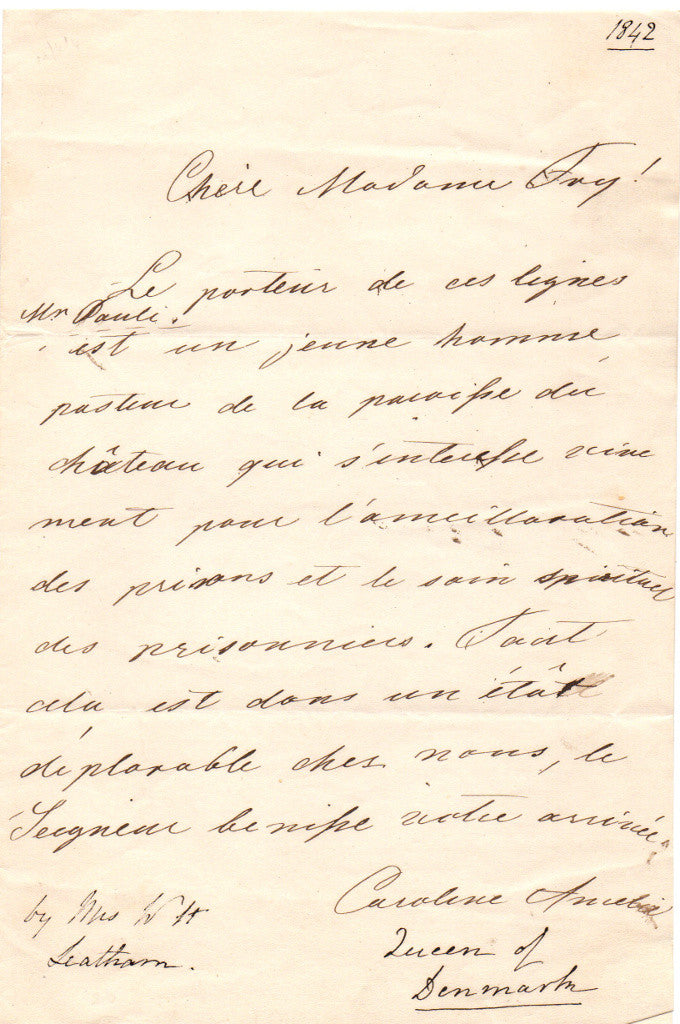 1842
Chère Madame Fry!
Le porteur de ces lignes
Mr Pauli.
est un jeune homme
pasteur de la paroisse du
château qui s'interesse vive
ment pour l'ameillaration
des prisons et le soin spirituel
des prisonniers. Tout
cela est dans un étât
déplorable chez nous, le
Seigneur benisse votre arrivée
Caroline Amelie
by Mrs W H
Leatham.
Queen of
Denmark